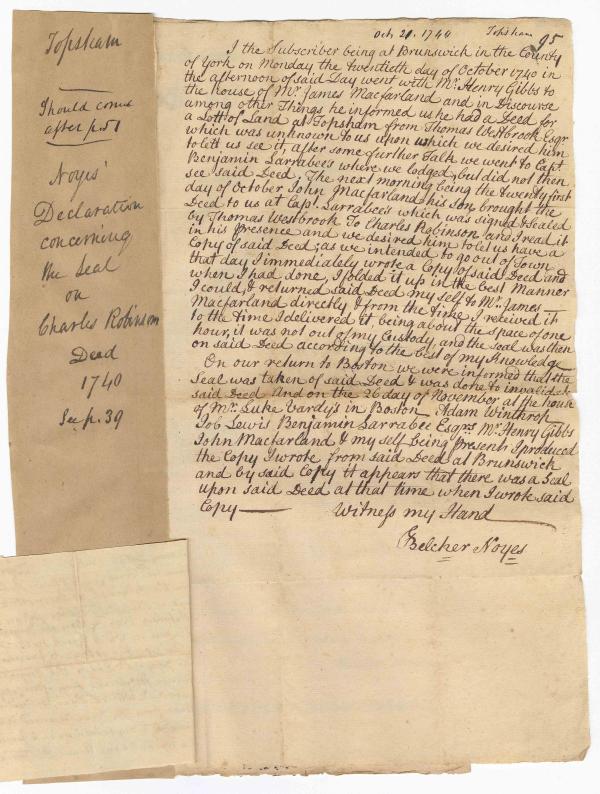 Topsham
Should come
after p. 51
Noyes'
Declaration
concerning
the Seal
on
Charles Robinson
Deed
1740
See p. 39
Oct 21. 1740 Topsham 95
I the Subscriber being at Brunswick in the County
of York on Monday the twentieth day of October 1740 in
the afternoon of said Day went with Mr. Henry Gibbs to
the house of Mr. James Macfarland and in Discourse
among other Things he informed us he had a Deed for
a Lott of Land at Topsham from Thomas Westbrook Esqr
which was unknown to us upon which we desired him
to lett us see it, after some further Talk we went to Capt
Benjamin Larrabees where we lodged, but did not then
see said Deed, The next morning being the twenty first
day of October John Macfarland his son, brought the
Deed to us at Capt. Larrabee's which was signed & Sealed
by Thomas Westbrook To Charles Robinson and I read it
in his Presence and we desired him to let us have a
Copy of said Deed; as we intended to go out of Town
that day I immediately wrote a Copy of said Deed and
when I had done, I folded it up in the best Manner
I could, & returned said Deed my self to Mr. James
Macfarland directly & from the time I received it
to the time I delivered it, being about the space of one
hour, it was not out of my Custody, and the Seal was then
on said Deed according to the best of my Knowledge
On our return to Boston we were informed that the
Seal was taken of said Deed & was done to invalid
said Deed And on the 26 day of November at the house
of Mr. Luke Vardy's in Boston Adam Winthrop
Job Lewis Benjamin Larrabee Esqrs. Mr. Henry Gibbs
John Macfarland & my self being present I produced
the Copy I wrote from said Deed at Brunswick
and by said Copy it appears that there was a Seal
upon said Deed at that time when I wrote said
Copy Witness my Hand
Belcher Noyes